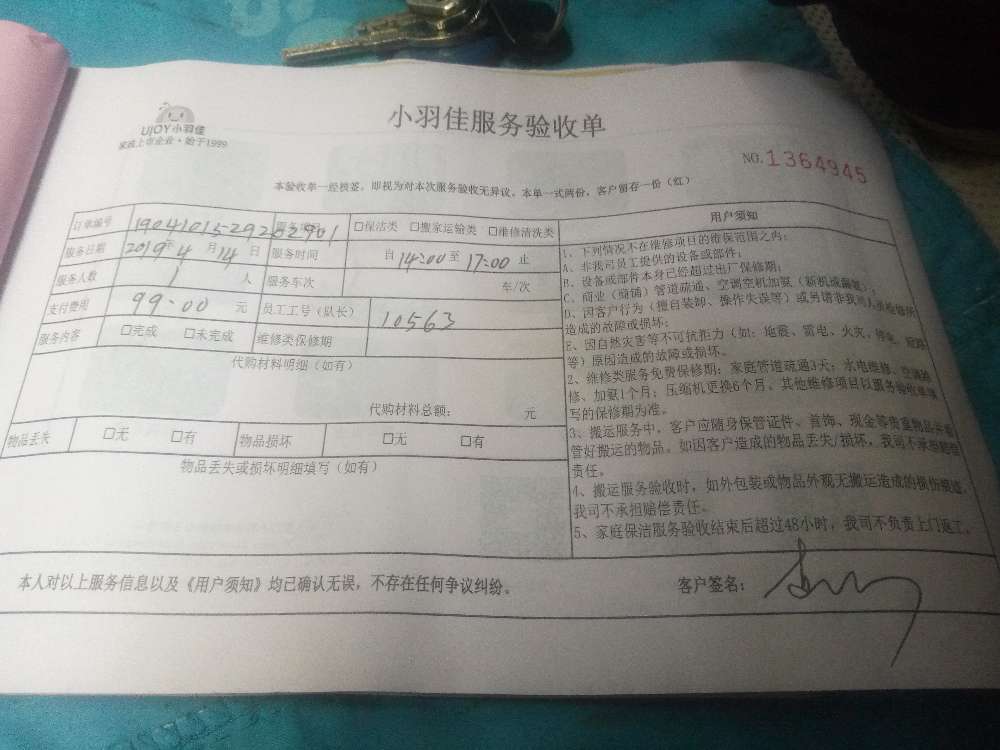 UJOY小羽佳
家政上市企业·始于1999
小羽佳服务验收单
NO.1364945
本验收单一经核签，即视为对本次服务验收无异议。本单一式两份，客户留存一份（红）
订单编号 服务类别 □保洁类 □搬家运输类 □维修清洗类
服务日期 2019年4月14日 服务时间 自14:00至17:00止
服务人数 1人 服务车次 车/次
支付费用 99.00元 员工工号（队长） 10563
服务内容 □完成 □未完成 维修类保修期
代购材料明细（如有）
代购材料总额： 元
物品丢失 □无 □有 物品损坏 □无 □有
物品丢失或损坏明细填写（如有）
用户须知
1、下列情况不在维修项目的维保范围之内：
A、非我司员工提供的设备或部件；
B、设备或部件本身已经超过出厂保修期；
C、商业（商铺）管道疏通、空调空机加氨（新机或漏氨）；
D、因客户行为（擅自装卸、操作失误等）或另请非我司人员检修所
造成的故障或损坏；
E、因自然灾害等不可抗拒力（如：地震、雷电、火灾、停电、短路
等）原因造成的故障或损坏。
2、维修类服务免费保修期：家庭管道疏通3天；水电维修、空调维
修、加氨1个月；压缩机更换6个月。其他维修项目以服务验收单填
写的保修期为准。
3、搬运服务中，客户应随身保管证件、首饰、现金等贵重物品
管好搬运的物品。如因客户造成的物品丢失/损坏，我司不承担赔偿
责任。
4、搬运服务验收时，如外包装或物品外观无搬运造成的损伤痕迹，
我司不承担赔偿责任。
5、家庭保洁服务验收结束后超过48小时，我司不负责上门返工。
本人对以上服务信息以及《用户须知》均已确认无误，不存在任何争议纠纷。
客户签名：